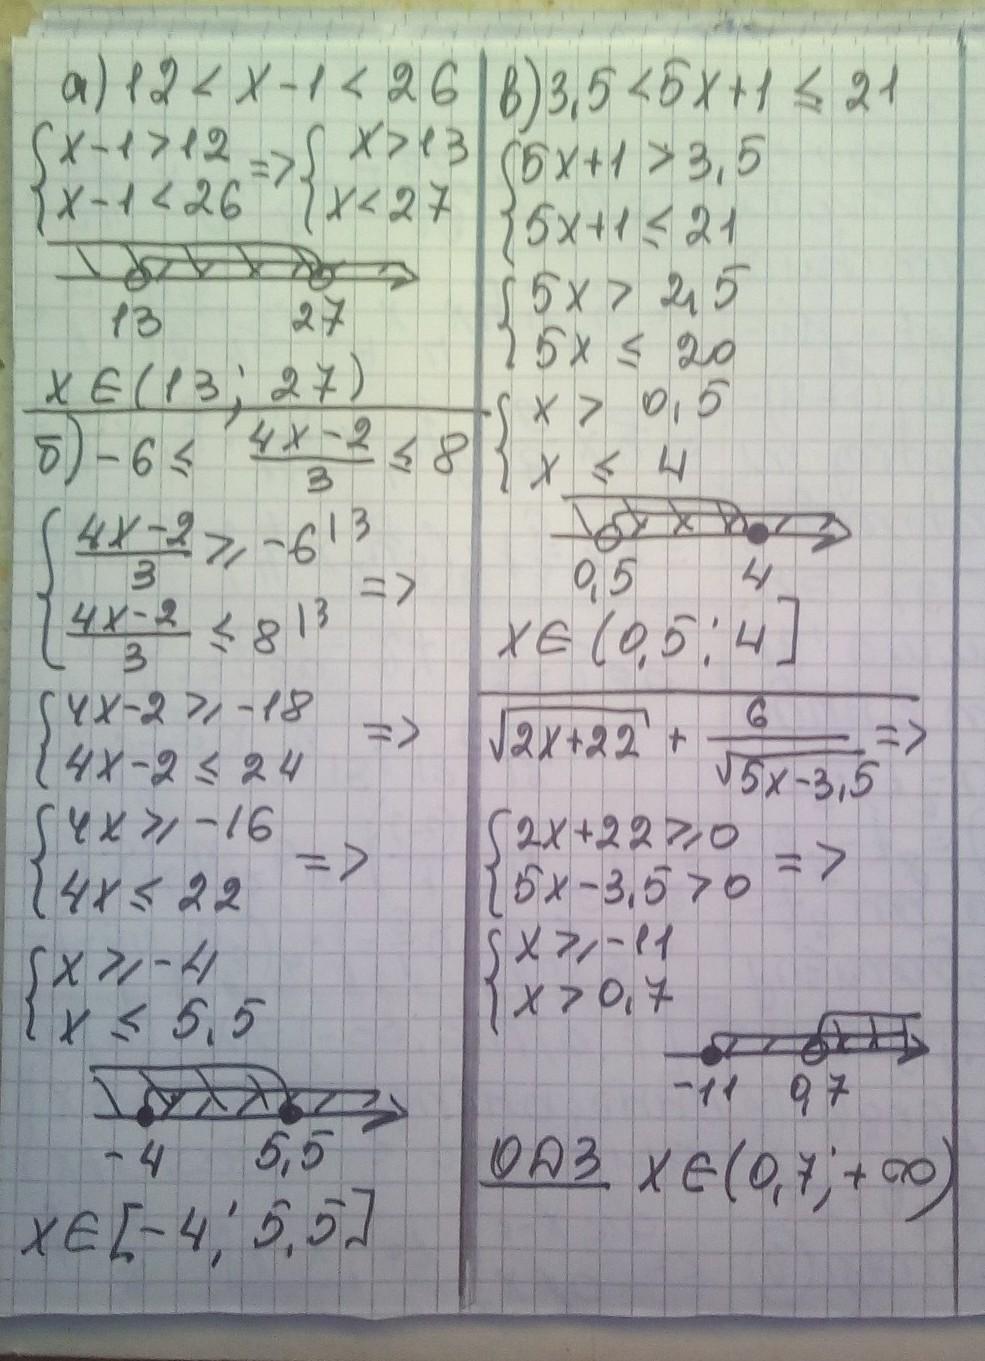 а) 12 < x - 1 < 26
{ x - 1 > 12 => { x > 13
{ x - 1 < 26 { x < 27
13 27
x ∈ (13; 27)
б) -6 ≤ (4x - 2)/3 ≤ 8
{ (4x - 2)/3 ≥ -6 |3
{ (4x - 2)/3 ≤ 8 |3 =>
{ 4x - 2 ≥ -18
{ 4x - 2 ≤ 24 =>
{ 4x ≥ -16
{ 4x ≤ 22 =>
{ x ≥ -4
{ x ≤ 5,5
-4 5,5
x ∈ [-4; 5,5]
в) 3,5 < 5x + 1 ≤ 21
{ 5x + 1 > 3,5
{ 5x + 1 ≤ 21
{ 5x > 2,5
{ 5x ≤ 20
{ x > 0,5
{ x ≤ 4
0,5 4
x ∈ (0,5; 4]
√(2x + 22) + 6/√(5x - 3,5) =>
{ 2x + 22 ≥ 0
{ 5x - 3,5 > 0 =>
{ x ≥ -11
{ x > 0,7
-11 0,7
ОДЗ x ∈ (0,7; +∞)